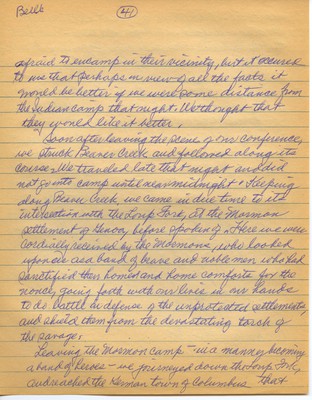 Bell
41
afraid to encamp in their vicinity, but it occured
to me that perhaps in view of all the facts it
would be better if we were some distance from
the Indian camp that night. We thought that
they would like it better.
Soon after leaving the scene of our conference,
we struck Beaver Creek and followed along its
course. We traveled late that night and did
not go into camp until near midnight. Keeping
along Beaver Creek, we came in due time to its
intersection with the Loup Fork, at the Mormon
settlement of Genoa, before spoken of. Here we were
cordially received by the Mormons, who looked
upon us as a band of brave and noble men who had
sacrificed their homes and home comforts for the
nonce, going forth with our lives in our hands
to do battle in defense of the unprotected settlements,
and shield them from the devastating torch of
the savage.
Leaving the Mormon camp - in a manner becoming
a band of heroes - we journeyed down the Loup Fork,
and reached the German town of Columbus that